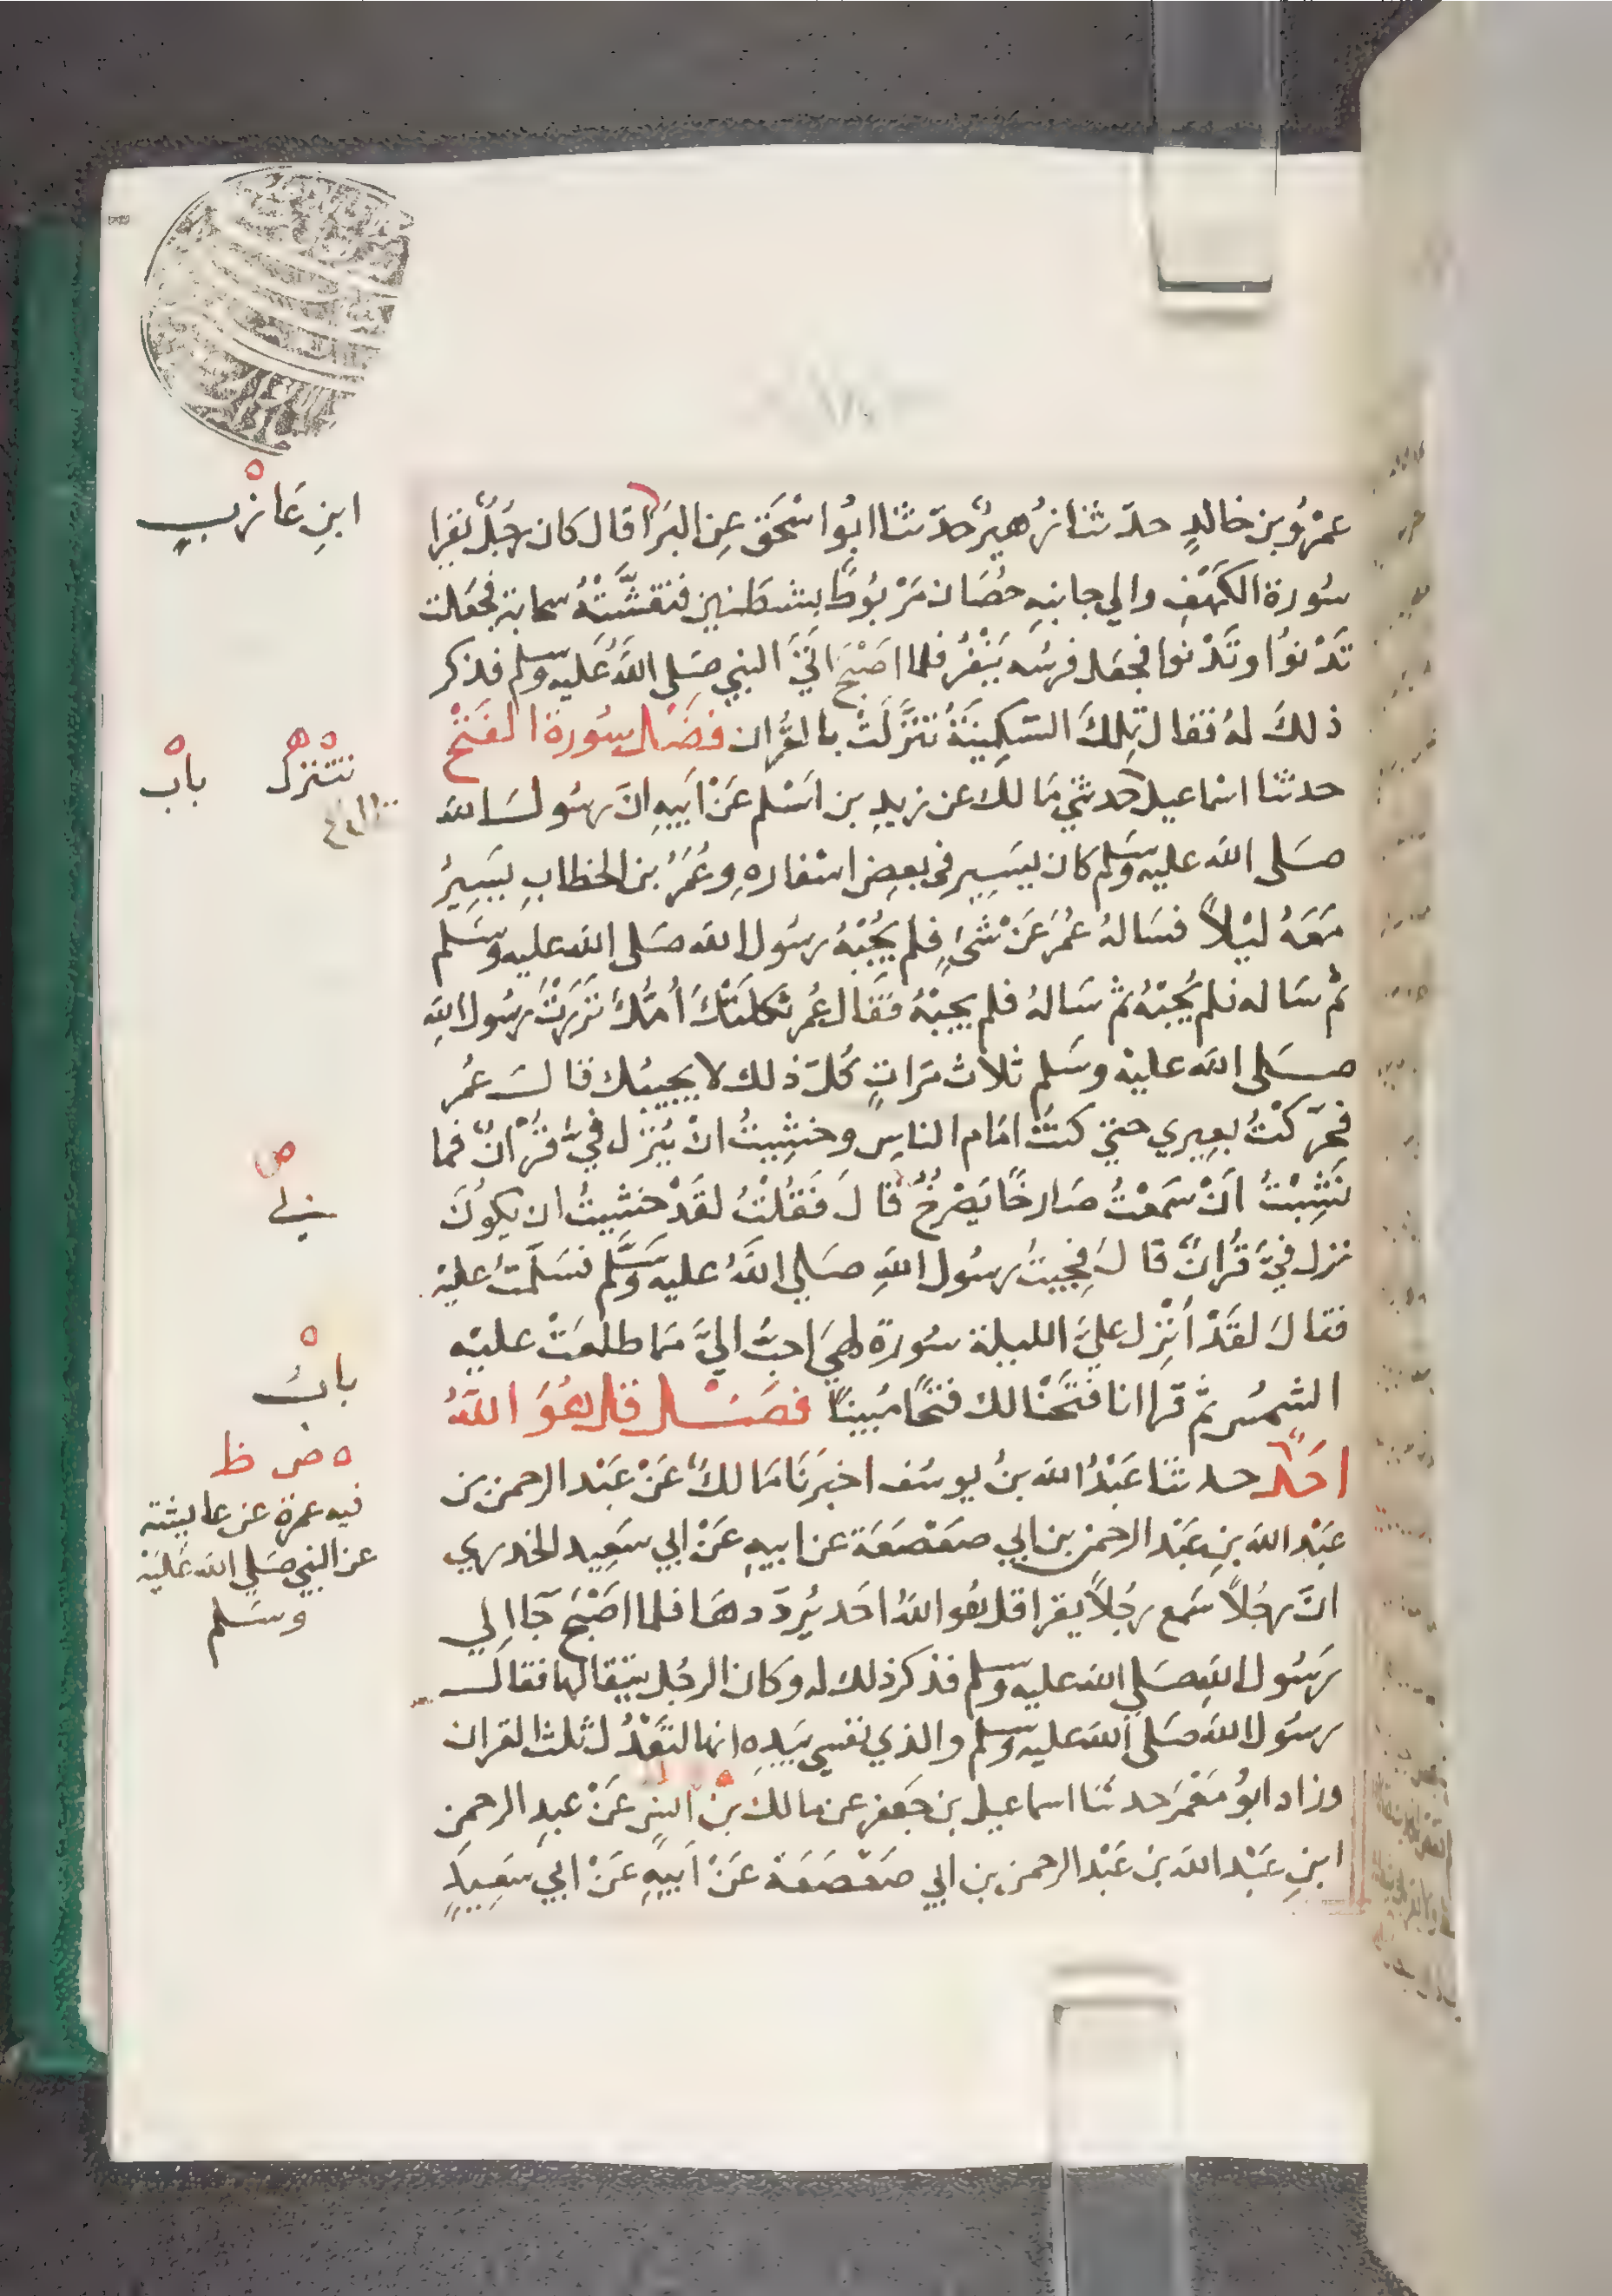 عمْرُو بن خالدٍ حدّثنا زُهيرٌ حدّثنا ابُوا سْحَق عِن البَرَا قال كان رجُلٌ يقرا
سُورة الكَهْفِ والي جانبهِ حصَان مَرْبُوطٌ بشطنين فتغشَّتْهُ سحابة فجعَلت
تَدْنوُا وتَدْنوا فجعَل فرسُه يَنْفرُ فلما اصْبَحَ اتَيَ النبي صَلي اللهُ عَليه وسلم فذكر
ذلكَ لهُ فقال تِلكَ السّكِينَةُ تنَزَّلَتْ بالقُران فضَل سُورة الفَتْح
حدثنا اسْماعيل حدثني مَالك عن زيدِ بن اسَلم عَنْ اَبيهِ انّ رسُولَ الله
صَلى الله عليه وسلم كان يسَيِر في بعضِ اسْفارهِ وعُمَرُ بن الخطابِ يسَيرُ
مَعَهُ ليْلاً فسَالهُ عُمَر عَنْ شَئٍ فلم يُجبْهُ رسُول الله صَلى الله عليه وسَلم
ثُمّ سَاله فلم يُجبْهُ ثمّ سَالهُ فلم يجبْهُ فقَال عُمر ثكلتكَ أُمّكَ نزَرْتَ رسُول اللهِ
صَلى الله عليْه وسَلم ثلاث مرّاتٍ كُلّ ذلك لا يجيبُك قالَ عُمر
فحَرّكتُ بعِيري حتي كنتُ امَام الناسِ وخشِيتُ انْ يُنزل فيَّ قُرْانٌ فما
نَشِبْتُ انْ سَمعْتُ صَارخًا يَصْرخُ قالَ فقُلْتُ لقَدْ خشيتُ ان يكوُنَ
نزل فيَّ قُرانٌ قالَ فجِيتُ رسُول اللهِ صَلي اللهُ عليه وَسَلَّم فسَلّمتُ عليْه
فقالَ لقَدْ أُنْزل عليَّ الليلة سُورة لهيَ احبُّ اليَّ مما طلعَتْ عليْه
الشمسُ ثمّ قرا انا فتَحْنا لك فتْحًا مُبينًا فضَل قل هُوَ اللهُ
احَدٌ حدثنا عَبْدُ الله بنُ يوسُف اخبرَنا مَالكٌ عَنْ عَبْد الرحمن بن
عَبْد الله بنِ عَبْد الرحمن بن ابي صَعْصَعَة عن ابيهِ عَنْ ابي سَعِيد الخدري
انّ رجُلاً سَمع رجُلاً يقرا قل هُو اللهُ احَد يُردّدهَا فلما اصْبَحَ جَا الي
رسُول اللهِ صَلي الله عليه وسلم فذكر ذلك له وكان الرجُل يتقالها فقالَ
رسُول الله صَلى الله عليه وسلم والذي نفسي بيَدِه انها لتَعْدُل ثلث القران
وزاد ابُو مَعْمَر حدثنا اسماعيل بن جَعفر عن مالك بْن انسٍ عَنْ عبدِ الرحمن
ابنِ عَبْد الله بن عَبْد الرحمن بن ابي صَعْصَعَة عَنْ اَبيهِ عَنْ ابي سَعِيدٍ
ه
ابنِ عَازبٍ
ه ه ه
تتنزل باب
ص
ه
بابُ
ه ص ظ
فيه عمرة عن عايشة
عن النبي صَلي الله عَليْه
وسَلم